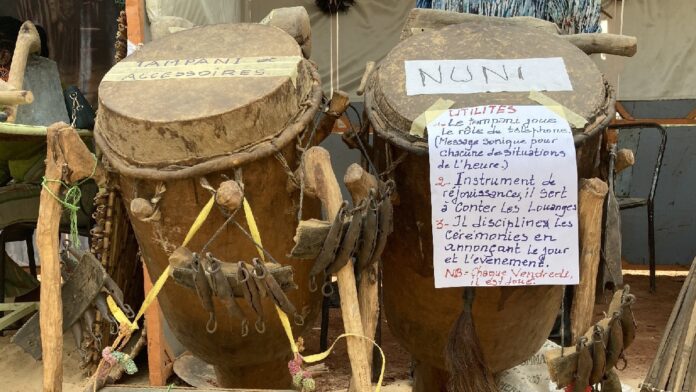 TAMPANI &
ACCESSOIRES
NUNI
UTILITÉS
1- Le tampani joue
le rôle de téléphone.
(Message sonique pour
chacune des situations
de l'heure.)
2- Instrument de
rejouissance, il sert
à conter les louanges
3- Il disciplines les
cérémonies en
annonçant le jour
et l'évènement.
NB= Chaque Vendredi,
il est joué.